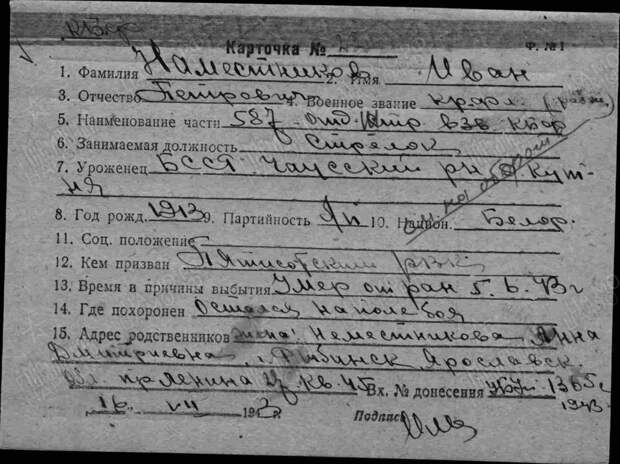 Карточка № Ф. № 1
1. Фамилия Наместников 2. Имя Иван
3. Отчество Петрович 4. Военное звание кр-арм.
5. Наименование части 587 отд. взв КБФ
6. Занимаемая должность Стрелок
7. Уроженец БССР Чаусский рн
8. Год рожд. 1913 9. Партийность б/п 10. Национ. Белор.
см на обороте
11. Соц. положение
12. Кем призван РВК
13. Время и причины выбытия Умер от ран 5.6.43 г
14. Где похоронен Остался на поле боя
15. Адрес родственников жена: Неместникова Анна
Дмитриевна, г. Рыбинск Ярославск
обл пр Ленина кв. 45 Вх. № донесения 1365с
16 VII 194 г. 1943
Подпись